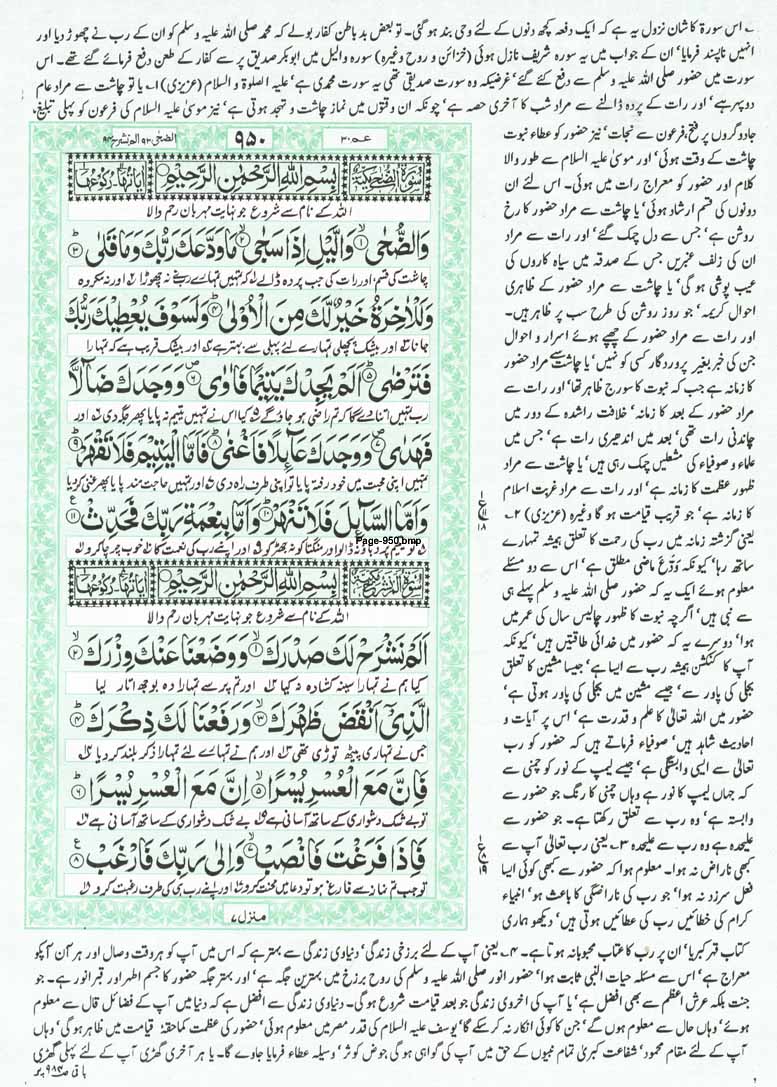 ۱۔ اس سورۃ کا شان نزول یہ ہے کہ ایک دفعہ کچھ دنوں کے لئے وحی بند ہو گئی۔ تو بعض بد باطن کفار بولے کہ محمد صلی اللہ علیہ وسلم کو ان کے رب نے چھوڑ دیا اور
انہیں ناپسند فرمایا' ان کے جواب میں یہ سورہ شریف نازل ہوئی (خزائن و روح وغیرہ) سورہ والیل میں ابوبکر صدیق پر سے کفار کے طعن دفع فرمائے گئے تھے۔ اس
سورت میں حضور صلی اللہ علیہ وسلم سے دفع کئے گئے' غرضیکہ وہ سورت صدیقی تھی یہ سورت محمدی ہے' علیہ الصلوۃ و السلام (عزیزی) ۱۔ یا تو چاشت سے مراد عام
دوپہر ہے' اور رات کے پردہ ڈالنے سے مراد شب کا آخری حصہ ہے' چونکہ ان وقتوں میں نماز چاشت و تہجد ہوتی ہے' نیز موسیٰ علیہ السلام کی فرعون کو پہلی تبلیغ،
جادوگروں پر فتح' فرعون سے نجات' نیز حضور کو عطاء نبوت
چاشت کے وقت ہوئی' اور موسیٰ علیہ السلام سے طور والا
کلام اور حضور کو معراج رات میں ہوئی۔ اس لئے ان
دونوں کی قسم ارشاد ہوئی' یا چاشت سے مراد حضور کا رخ
روشن ہے' جس سے دل چمک گئے' اور رات سے مراد
ان کی زلف عنبریں جس کے صدقہ میں سیاہ کاروں کی
عیب پوشی ہو گی' یا چاشت سے مراد حضور کے ظاہری
احوال کریمہ' جو روز روشن کی طرح سب پر ظاہر ہیں۔
اور رات سے مراد حضور کے چھپے ہوئے اسرار و احوال
جن کی خبر بغیر پروردگار کسی کو نہیں' یا چاشت سے مراد حضور
کا زمانہ ہے جب کہ نبوت کا سورج ظاہر تھا' اور رات سے
مراد حضور کے بعد کا زمانہ' خلافت راشدہ کے دور میں
چاندنی رات تھی' بعد میں اندھیری رات ہے' جس میں
علماء و صوفیاء کی مشعلیں چمک رہی ہیں' یا چاشت سے مراد
ظہور عظمت کا زمانہ ہے' اور رات سے مراد غربت اسلام
کا زمانہ ہے' جو قریب قیامت ہو گا وغیرہ (عزیزی) ۲۔
یعنی گزشتہ زمانہ میں رب کی رحمت کا تعلق ہمیشہ تمہارے
ساتھ رہا' کیونکہ وَدَّعَ ماضی مطلق ہے' اس سے دو مسئلے
معلوم ہوئے ایک یہ کہ حضور صلی اللہ علیہ وسلم پہلے ہی
سے نبی ہیں' اگرچہ نبوت کا ظہور چالیس سال کی عمر میں
ہوا' دوسرے یہ کہ حضور میں خدائی طاقتیں ہیں' کیونکہ
آپ کا کنکشن ہمیشہ رب سے ایسا ہے' جیسا مشین کا تعلق
بجلی کی پاور سے' جیسے مشین میں بجلی کی پاور ہوتی ہے'
حضور میں اللہ تعالیٰ کا علم و قدرت ہے' اس پر آیات و
احادیث شاہد ہیں' صوفیاء فرماتے ہیں کہ حضور کو رب
تعالیٰ سے ایسی وابستگی ہے' جیسے لیمپ کے نور کو چمنی سے
کہ جہاں لیمپ کا نور ہے وہاں چمنی کا رنگ جو حضور سے
وابستہ ہے' وہ رب سے تعلق رکھتا ہے۔ جو حضور سے
علیحدہ ہے وہ رب سے علیحدہ ۳۔ یعنی رب تعالیٰ آپ سے
کبھی ناراض نہ ہوا۔ معلوم ہوا کہ حضور سے کبھی کوئی ایسا
فعل سرزد نہ ہوا' جو رب کی ناراضگی کا باعث ہو' انبیاء
کرام کی خطائیں رب کی عطائیں ہوتی ہیں' دیکھو ہماری
عم ۳۰
۹۵۰
الضحیٰ ۹۳ الم نشرح ۹۴
سُوْرَةُ الضُّحٰى مَكِّيَّةٌ
بِسْمِ اللّٰهِ الرَّحْمٰنِ الرَّحِيْمِ
اٰيَاتُهَا ۱۱ رُكُوْعُهَا ۱
اللہ کے نام سے شروع جو نہایت مہربان رحم والا
وَالضُّحٰى ۱ وَالَّيْلِ اِذَا سَجٰى ۲ مَا وَدَّعَكَ رَبُّكَ وَمَا قَلٰى ۳
چاشت کی قسم اور رات کی جب پردہ ڈالے کہ تمہیں تمہارے رب نے نہ چھوڑا اور نہ مکروہ
وَلَلْاٰخِرَةُ خَيْرٌ لَّكَ مِنَ الْاُوْلٰى ۴ وَلَسَوْفَ يُعْطِيْكَ رَبُّكَ
جانا اور بیشک پچھلی تمہارے لئے پہلی سے بہتر ہے اور بیشک قریب ہے کہ تمہارا
فَتَرْضٰى ۵ اَلَمْ يَجِدْكَ يَتِيْمًا فَاٰوٰى ۶ وَوَجَدَكَ ضَآلًّا
رب تمہیں اتنا دے گا کہ تم راضی ہو جاؤ گے کیا اس نے تمہیں یتیم نہ پایا پھر جگہ دی اور
فَهَدٰى ۷ وَوَجَدَكَ عَآئِلًا فَاَغْنٰى ۸ فَاَمَّا الْيَتِيْمَ فَلَا تَقْهَرْ ۹
تمہیں اپنی محبت میں خود رفتہ پایا تو اپنی طرف راہ دی اور تمہیں حاجت مند پایا پھر غنی کر دیا
وَاَمَّا السَّآئِلَ فَلَا تَنْهَرْ ۱۰ وَاَمَّا بِنِعْمَةِ رَبِّكَ فَحَدِّثْ ۱۱
تو یتیم پر دباؤ نہ ڈالو اور منگتا کو نہ جھڑکو اور اپنے رب کی نعمت کا خوب چرچا کرو
Page-950.bmp
ع ۱۸
سُوْرَةُ اَلَمْ نَشْرَحْ مَكِّيَّةٌ
بِسْمِ اللّٰهِ الرَّحْمٰنِ الرَّحِيْمِ
اٰيَاتُهَا ۸ رُكُوْعُهَا ۱
اللہ کے نام سے شروع جو نہایت مہربان رحم والا
اَلَمْ نَشْرَحْ لَكَ صَدْرَكَ ۱ وَوَضَعْنَا عَنْكَ وِزْرَكَ ۲
کیا ہم نے تمہارا سینہ کشادہ نہ کیا اور تم پر سے تمہارا وہ بوجھ اتار لیا
الَّذِيْٓ اَنْقَضَ ظَهْرَكَ ۳ وَرَفَعْنَا لَكَ ذِكْرَكَ ۴
جس نے تمہاری پیٹھ توڑی تھی اور ہم نے تمہارے لئے تمہارا ذکر بلند کر دیا
فَاِنَّ مَعَ الْعُسْرِ يُسْرًا ۵ اِنَّ مَعَ الْعُسْرِ يُسْرًا ۶
تو بے شک دشواری کے ساتھ آسانی ہے بے شک دشواری کے ساتھ آسانی ہے
فَاِذَا فَرَغْتَ فَانْصَبْ ۷ وَاِلٰى رَبِّكَ فَارْغَبْ ۸
تو جب تم نماز سے فارغ ہو تو دعا میں محنت کرو اور اپنے رب ہی کی طرف رغبت کرو
ع ۱۹
منزل ۷
کتاب قہر کبریا' ان پر رب کا عتاب محبوبانہ ہوتا ہے۔ ۴۔ یعنی آپ کے لئے برزخی زندگی' دنیاوی زندگی سے بہتر ہے کہ اس میں آپ کو ہر وقت وصال اور ہر آن آپکو
معراج ہے' اس سے مسئلہ حیات النبی ثابت ہوا' حضور انور صلی اللہ علیہ وسلم کی روح برزخ میں بہترین جگہ ہے' اور بہتر جگہ حضور کا جسم اطہر اور قبر انور ہے۔ جو
جنت بلکہ عرش اعظم سے بھی افضل ہے' یا آپ کی اخروی زندگی جو بعد قیامت شروع ہو گی۔ دنیاوی زندگی سے افضل ہے کہ دنیا میں آپ کے فضائل قال سے معلوم
ہوئے' وہاں حال سے معلوم ہوں گے' جن کا کوئی انکار نہ کر سکے گا' یوسف علیہ السلام کی قدر مصر میں معلوم ہوئی' حضور کی عظمت کماحقہ' قیامت میں ظاہر ہو گی' وہاں
آپ کے لئے مقام محمود' شفاعت کبریٰ تمام نبیوں کے حق میں آپ کی گواہی ہو گی حوض کوثر' وسیلہ عطاء فرمایا جاوے گا۔ یا ہر آخری گھڑی آپ کے لئے پہلی گھڑی
باقی صـ۹۸۳ پر